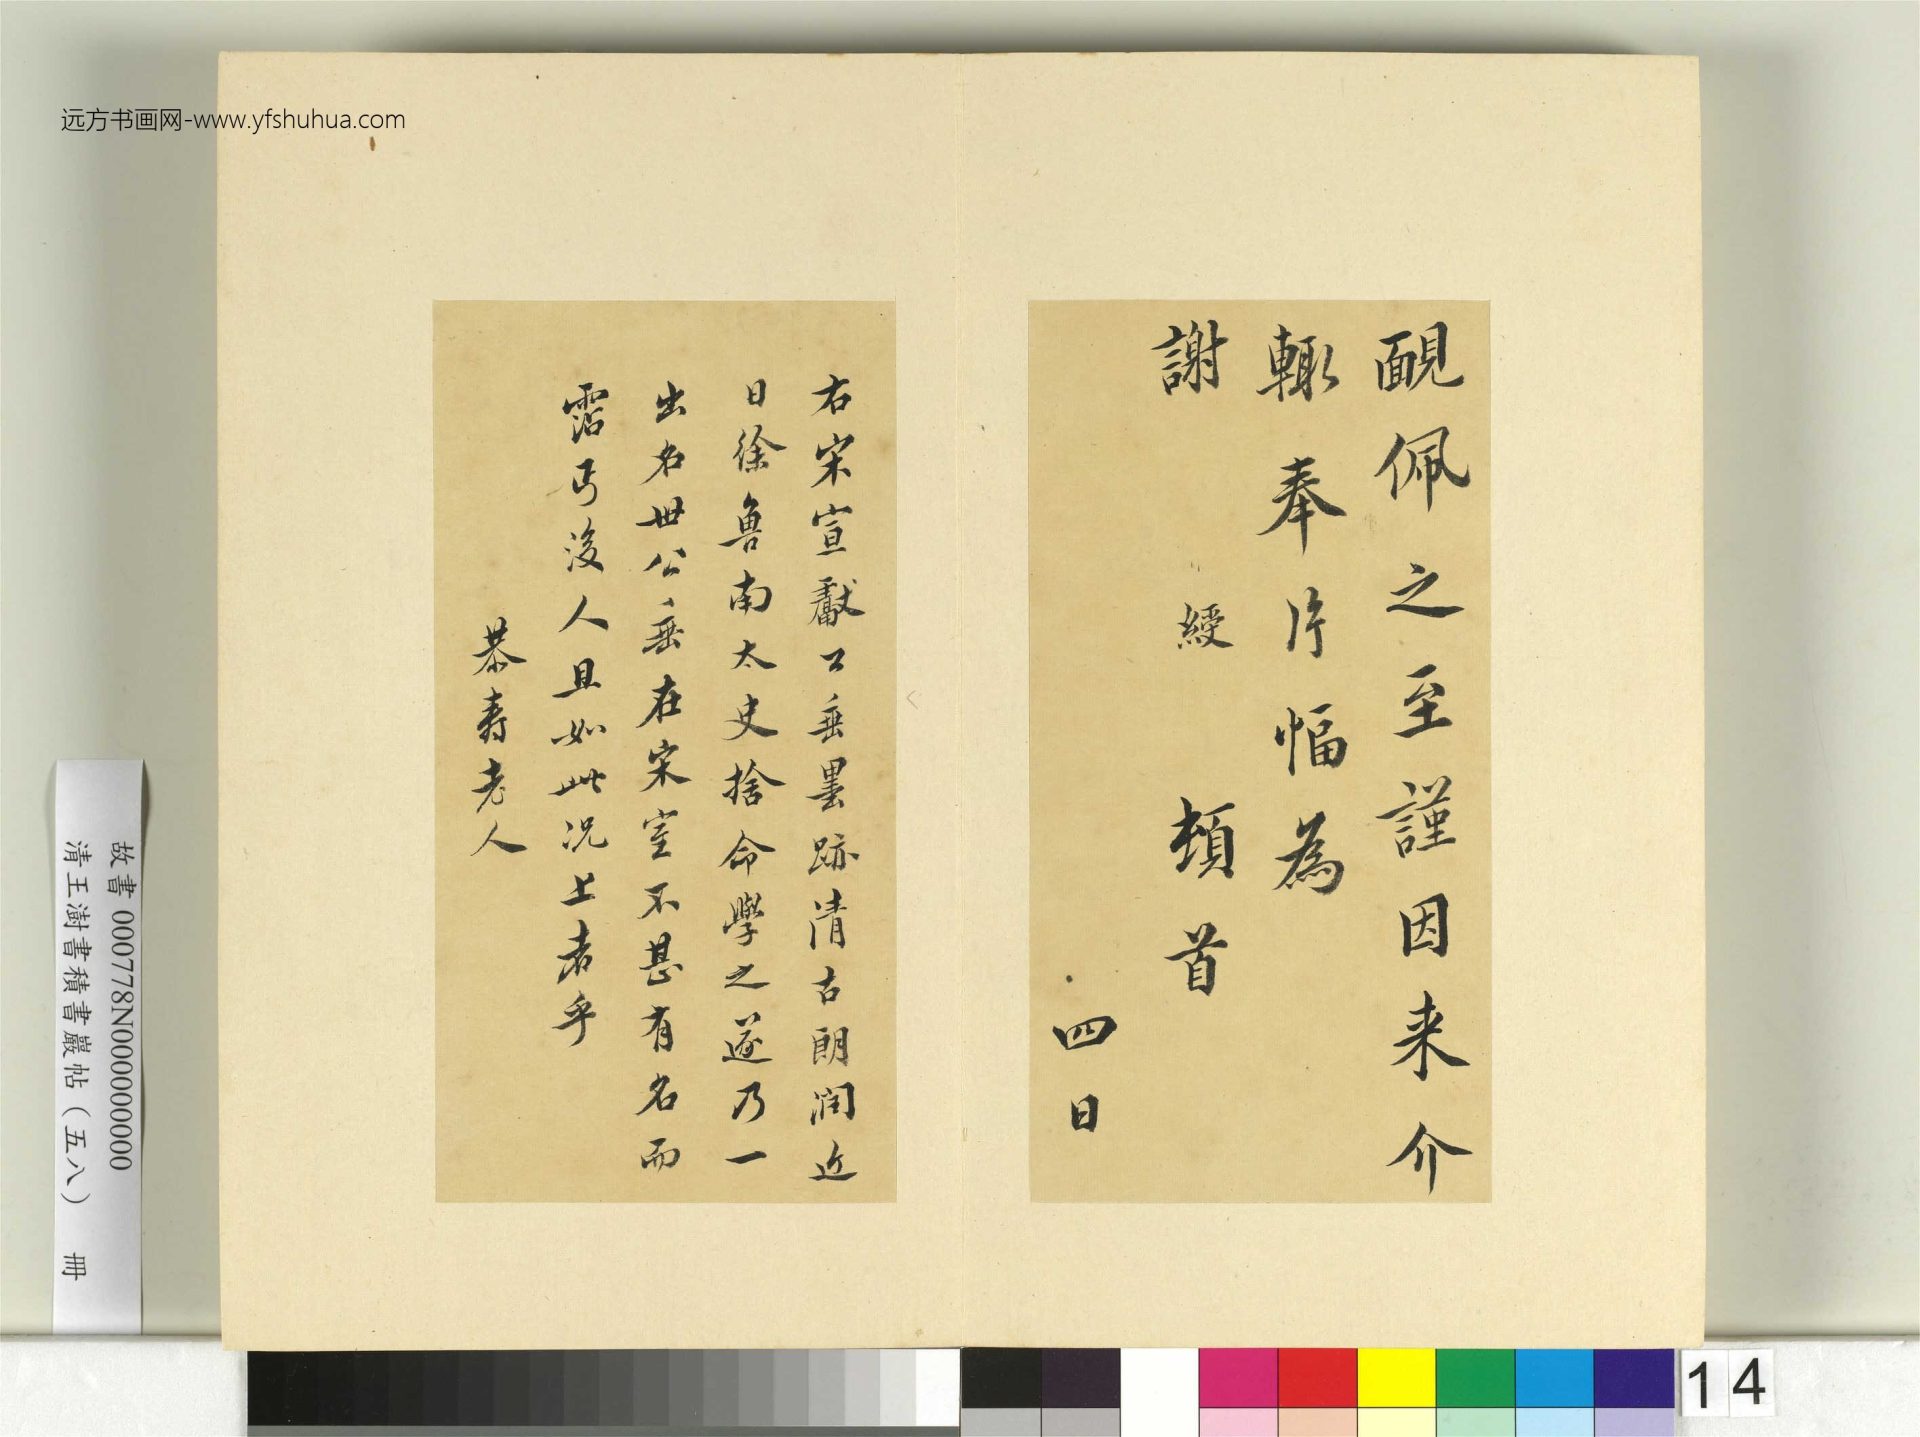 远方书画网-www.yfshuhua.com
靦佩之至謹因来介
輙奉片幅為
謝
綬 頓首
四日
右宋宣獻公垂墨跡清古朗潤近
日徐魯南太史捨命學之遂乃一
出名世公垂在宋室不甚有名而
霑丐後人且如此況上者乎
恭壽老人
故書000778N000000000
清王澍書積書巖帖(五八) 冊
14